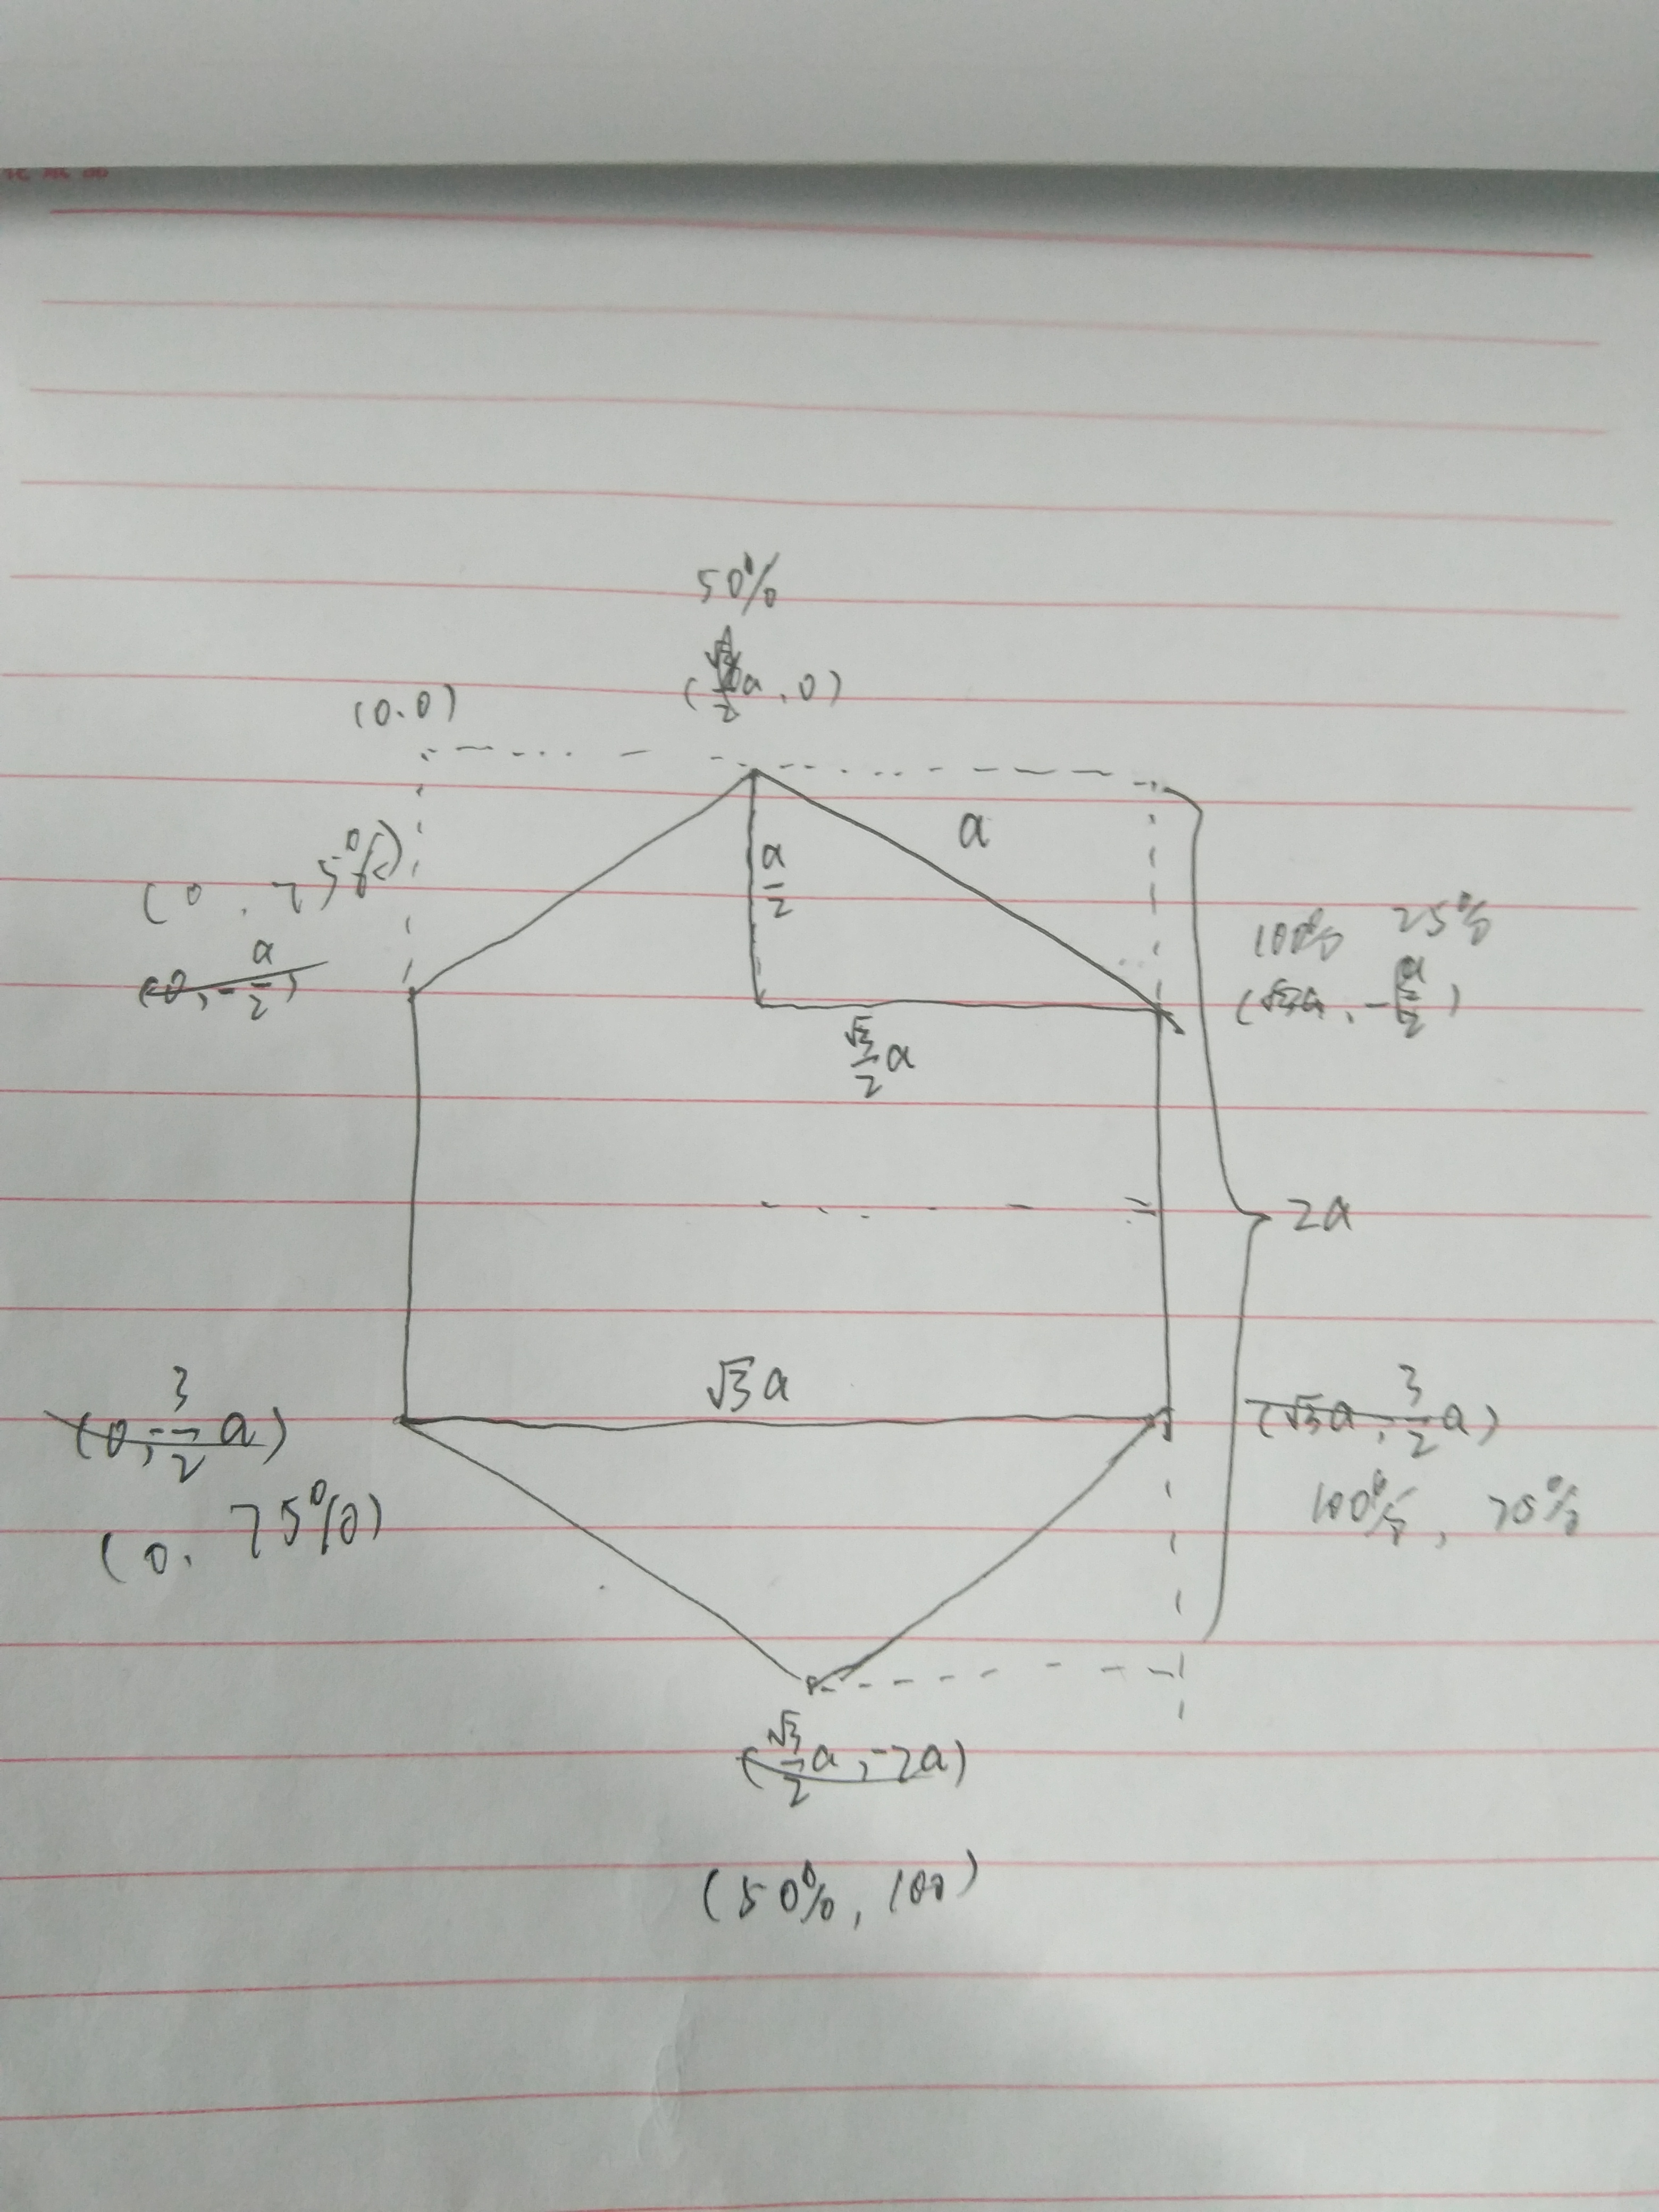 50%
(√3/2 a, 0)
(0.0)
a
a/2
(0, 25%)
(0, -a/2)
100% 25%
(√3a, -a/2)
√3/2 a
2a
√3 a
(0, -3/2 a)
(√3a, -3/2 a)
(0, 75%)
100%, 75%
(√3/2 a, -2a)
(50%, 100)